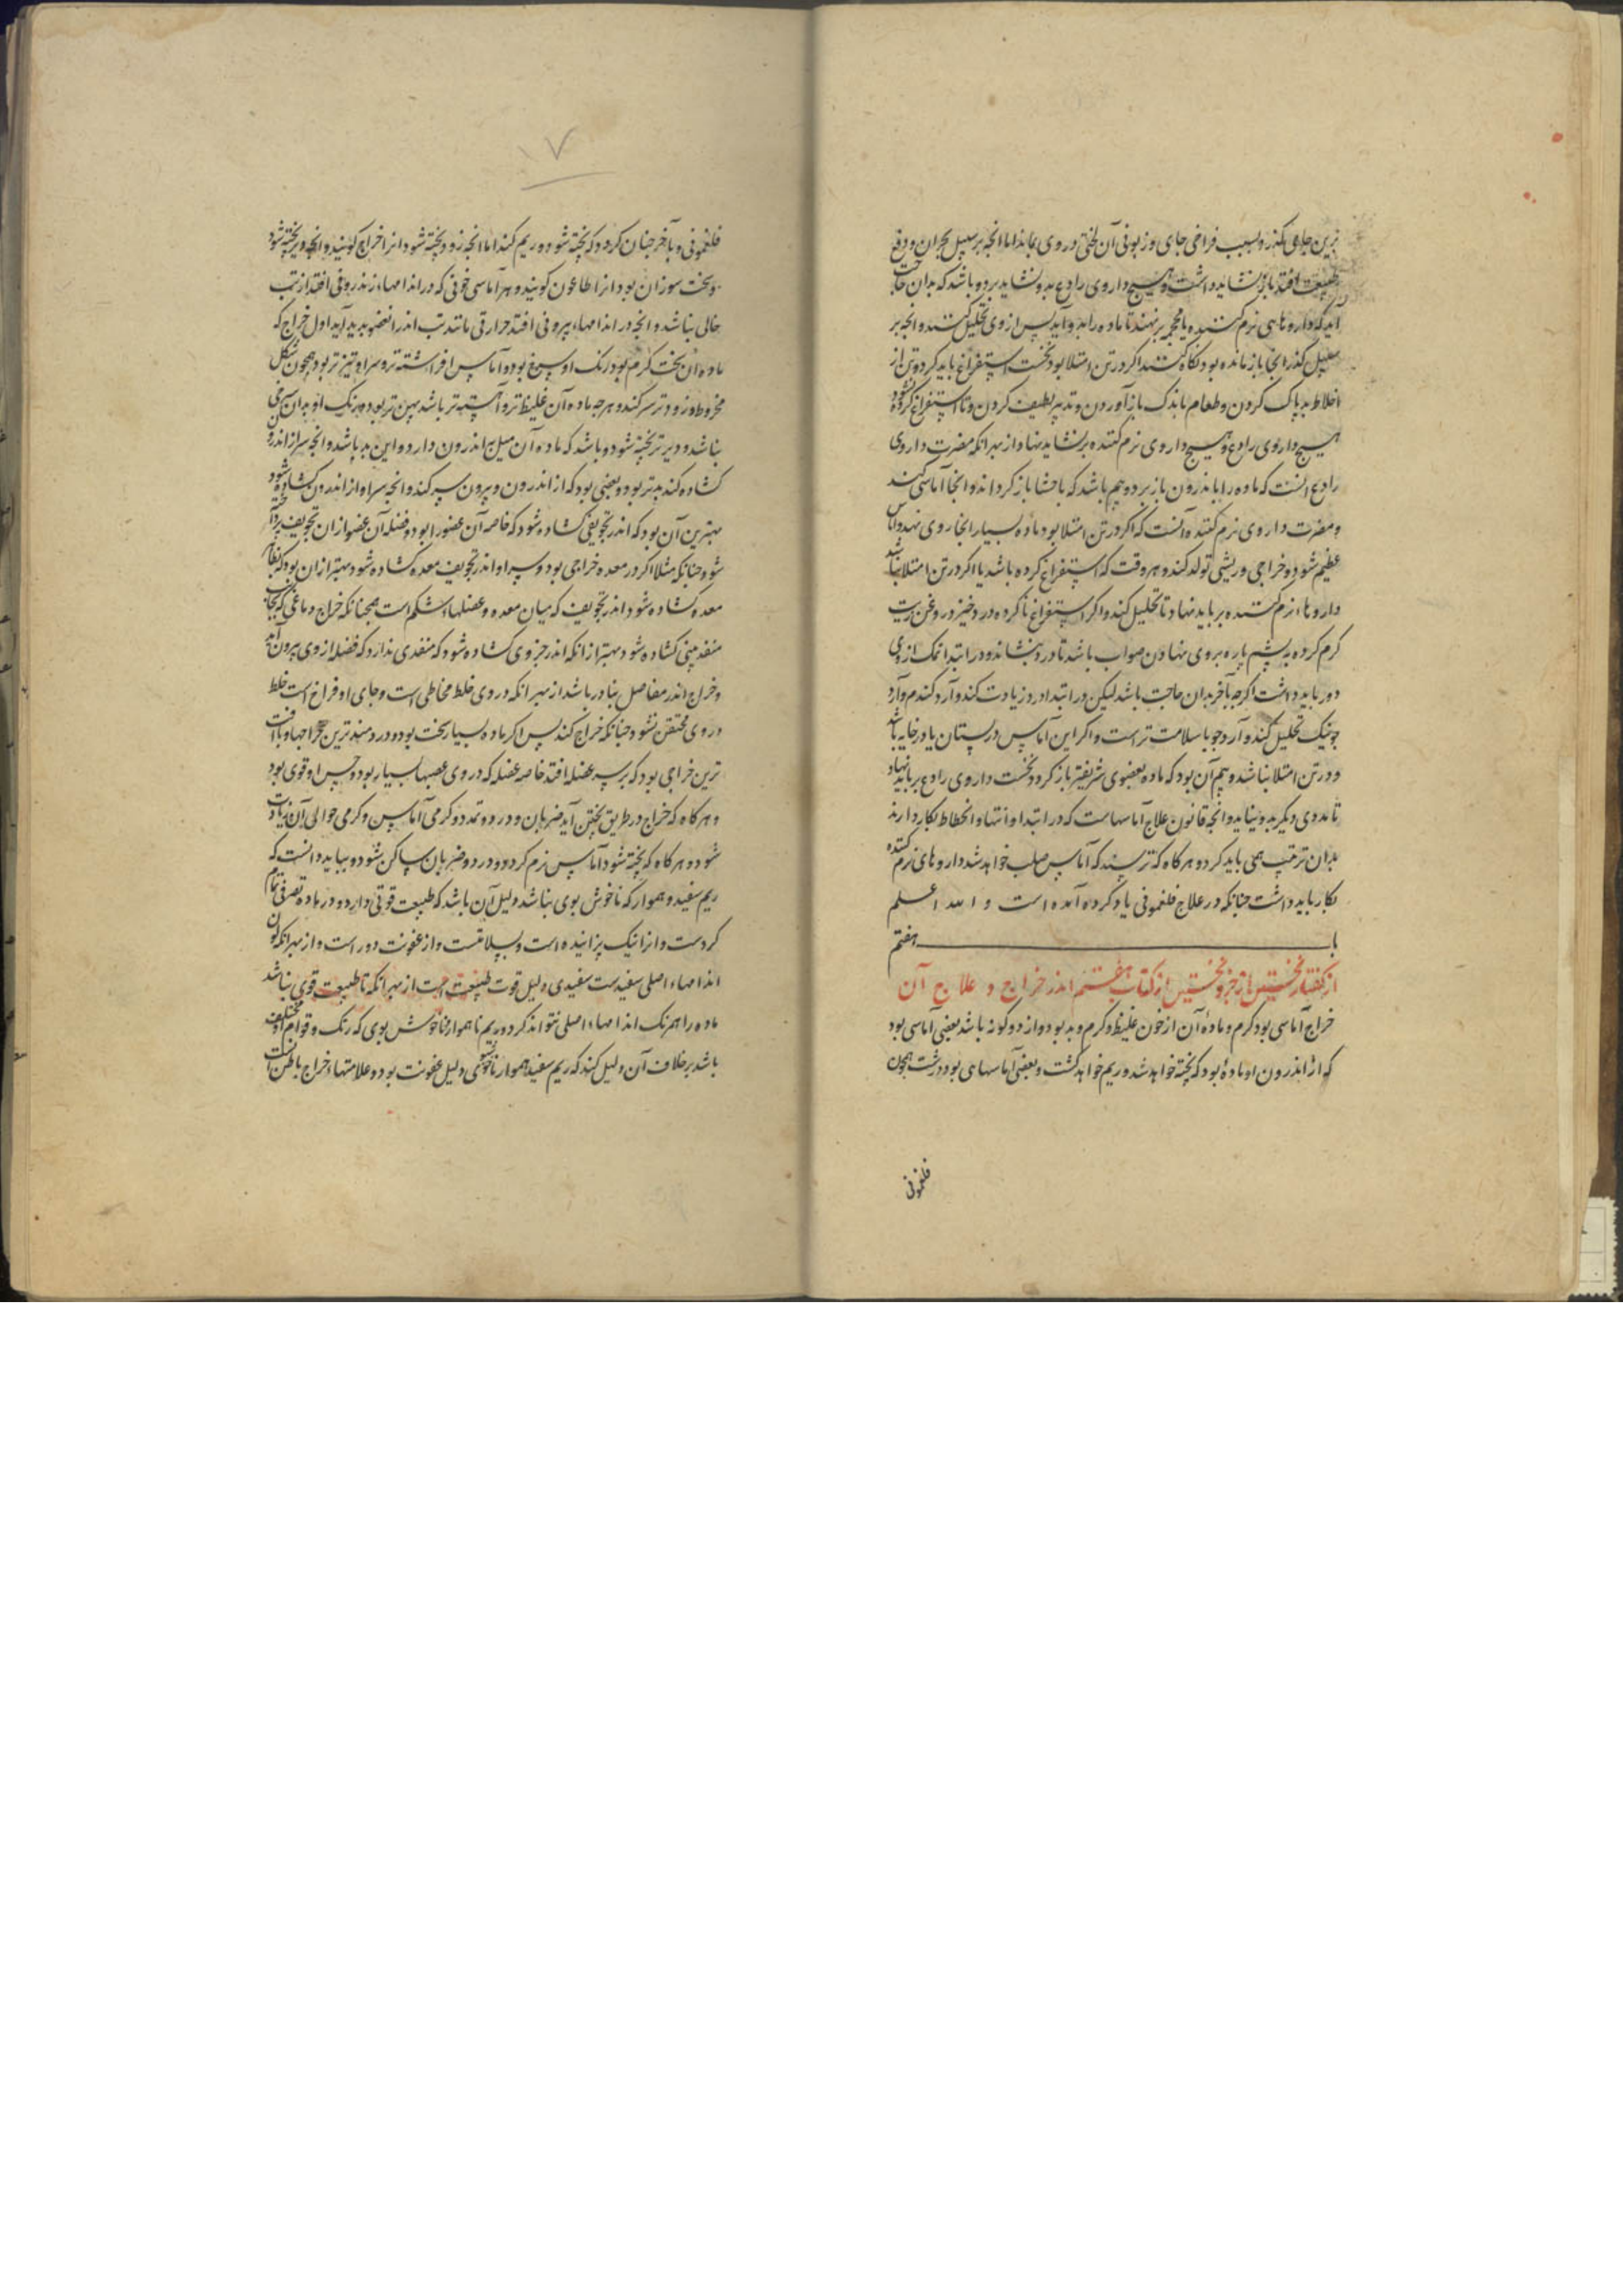 برین جای بگذرد بسبب فراخی جای و زبونی آن لختی در وی بماند اما انجه بر سپیل بحران و دفع
طبیعت افتد باز نشاید داشت و هیسج داروی رادع بدو نشاید برد و باشد که بدان حاجت
آید که داروهای نرم کننده یا محجمه برنهند تا ماده زاید و آید پس از وی تحلیل کنند و انجه بر
سپیل کذر انجا باز مانده بود نکاه کنند اکر در تن امتلا بود نخست استفراغ باید کرد و تن از
اخلاط بد پاک کردن و طعام باندک باز آوردن و تدبیر لطیف کردن و تا استفراغ کرده نشود
هیسج داروی رادع و هیسج داروی نرم کننده برنشاید نهاد از بهر انکه مضرت داروی
رادع انست که ماده را باندرون باز برد و بیم باشد که باحشا باز کرداند و انجا آماسی کند
و مضرت داروی نرم کننده آنست که اکر در تن امتلا بود ماده بسیار انجا روی نهد و آماس
عظیم شود و خراجی و ریشی تولد کند و هر وقت که استفراغ کرده باشد یا اکر در تن امتلا نباشد
داروها نرم کننده برباید نهاد تا تحلیل کند و اکر استفراغ ناکرده درد خیزد روغن زیت
کرم کرده به پشم پاره بروی نهادن صواب باشد تا درد بنشاند و در ابتدا نمک از وی
دور باید داشت اکرچه بآخر بدان حاجت باشد لیکن در ابتدا درد زیادت کند و آرد کندم و آرد
جو نیک تحلیل کند و آرد جو با سلامت تر است و اکر این آماس در پستان یا در خایه باشد
و در تن امتلا نباشد و بیم آن بود که ماده بعضوی شریفتر باز کردد نخست داروی رادع برباید نهاد
تا مددی دیکر بدو نیاید و انجه قانون علاج آماسهاست که در ابتدا و انتها و انحطاط بکار دارند
بدان ترتیب همی باید کرد و هر کاه که ترسند که آماس صلب خواهد شد داروهای نرم کننده
بکار باید داشت جنانکه در علاج فلغمونی یاد کرده آمده است و الله اعلم
باب هفتم
از کفتار نخستین از جزو نخستین از کتاب هفتم اندر خراج و علاج آن
خراج آماسی بود کرم و مادۀ آن از خون غلیظ و کرم و بد بود و از دو کونه باشد بعضی آماسی بود
که از اندرون او مادۀ بود که پخته خواهد شد و ریم خواهد کشت و بعضی آماسهای بود درشت همچون
فلغمونی
۷
فلغمونی و بآخر جنان کردد که پخته شود و ریم کند اما انجه زود پخته شود انرا خراج کویند و انجه دیر پخته شود
و سخت سوزان بود انرا طاعون کویند و هر آماسی خونی که در اندامهاء اندرونی افتد از تب
خالی نباشد و انجه در اندامهاء بیرونی افتد حرارتی مانند تب اندر ان عضو بدید آید اول خراج که
ماده آن سخت کرم بود رنک او سرخ بود و آماس افراشته تر و سر او تیزتر بود همچون شکل
مخروط و زودتر سر کند و هرجه ماده آن غلیظ تر و آهسته تر باشد پهن تر بود و رنک او بدان سرخی
نباشد و دیرتر پخته شود و باشد که ماده آن میل به اندرون دارد و این بد باشد و انجه سر از اندرون
کشاده کند بدتر بود و بعضی بود که از اندرون و بیرون سر کند و انجه سر او از اندرون کشاده شود
بهترین آن بود که اندر تجویفی کشاده شود که خاصه آن عضو را بود و فضله آن عضو از ان تجویف بیرون
شود جنانکه مثلا اکر در معده خراجی بود و سر او اندر تجویف معده کشاده شود بهتر از ان بود که بظاهر
معده کشاده شود اندر تجویف که میان معده و عضلهاء شکم است همجنانکه خراج دماغی که بجانب
منفذ بینی کشاده شود بهتر از انکه اندر جزوی کشاده شود که منفذی ندارد که فضله از وی بیرون آید
و خراج اندر مفاصل نادر باشد از بهر انکه در وی خلط مخاطی است و جای او فراخ است خلط
در وی محتقن نشود جنانکه خراج کند پس اکر ماده بسیار سخت بود و دردمند ترین خراجها و با آفت
ترین خراجی بود که بر سر عضله افتد خاصه عضله که در وی عصبها بسیار بود و حس او قوی بود
و هر کاه که خراج در طریق پختن آید ضربان و درد و تمدد و کرمی آماس و کرمی حوالی آن زیادت
شود و هر کاه که پخته شود آماس نرم کردد و درد و ضربان ساکن شود و بباید دانست که
ریم سفید و هموار که ناخوش بوی نباشد دلیل آن باشد که طبیعت قوتی دارد و در ماده تصرفی تمام
کردست و انرا نیک پزانیده است و بسلامتست و از عفونت دور است و از بهر انکه لون
اندامهاء اصلی سفیدست سفیدی دلیل قوت طبیعت است از بهر انکه تا طبیعت قوی نباشد
ماده را همرنک اندامهاء اصلی نتواند کرد و ریم ناهموار ناخوش بوی که رنک و قوام او مختلف
باشد برخلاف آن دلیل کند که ریم سفید هموار ناخوشبوی دلیل عفونت بود و علامتهاء خراج باطن آنست